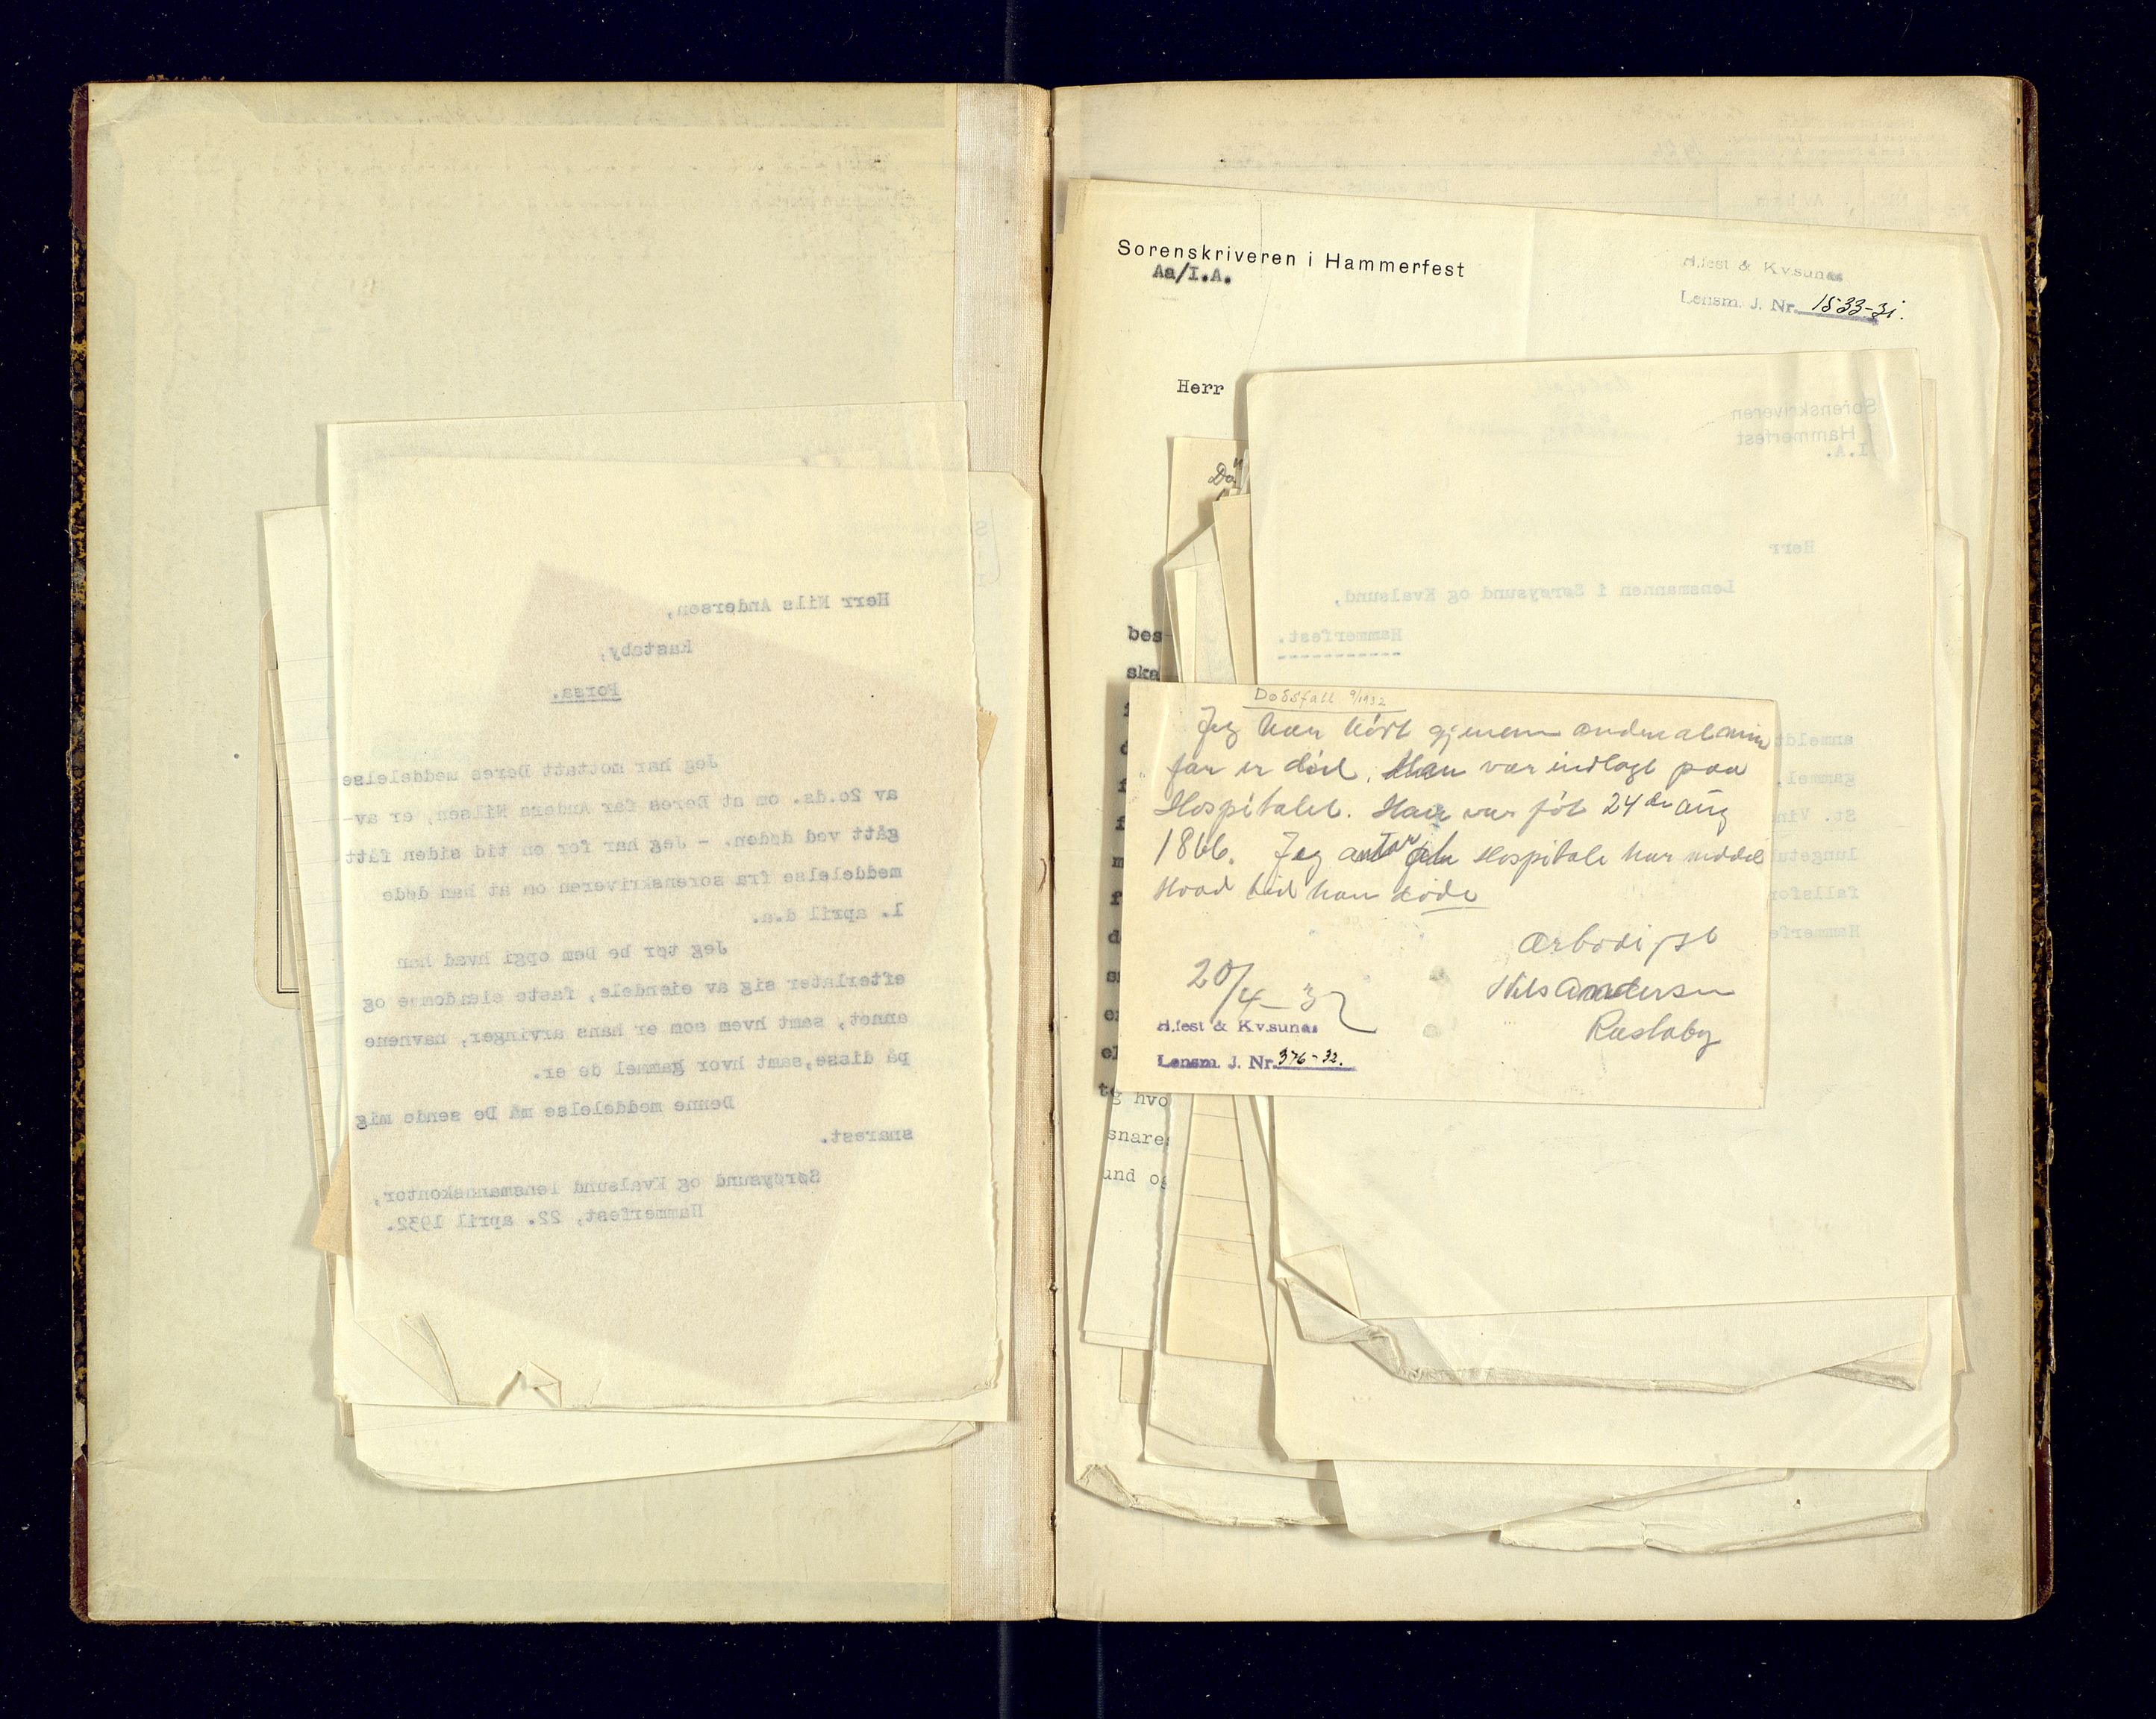 Herr Nils Andersen,
Rastaby,
Porsa.
Jeg har mottatt Deres meddelelse
av 20.ds. om at Deres far Anders Nilsen, er av-
gått ved døden. - Jeg har for en tid siden fått
meddelelse fra sorenskriveren om at han døde
1. april d.a.
Jeg tør be Dem opgi hvad han
efterlater sig av eiendele, faste eiendomme og
annet, samt hvem som er hans arvinger, navnene
på disse, samt hvor gammel de er.
Denne meddelelse må De sende mig
snarest.
Sørøysund og Kvalsund lensmannskontor,
Hammerfest, 22. april 1932.
Sorenskriveren i Hammerfest
Aa/I.A.
H.fest & Kv.sunds
Lensm. J. Nr. 1533-31.
Herr
Sorenskriveren
i Hammerfest
I.A.
Herr
Lensmannen i Sørøysund og Kvalsund,
Hammerfest.
bes-
ska
anmeldt
gammel.
St. Vin
lungetu
fallsfor
Hammerfe
Dødsfall 9/1932
Jeg har hört gjenem anden at min
far er död. Han var indlagt paa
Hospitalet. Han var föt 24 de aug
1866. Jeg antar at Hospitale har meddel
Hvad tid han döde
ærbödigst
Nils Andersen
Rastaby
20/4-32
H.fest & Kv.sunds
Lensm. J. Nr. 376-32.
g hvo
snares
und og